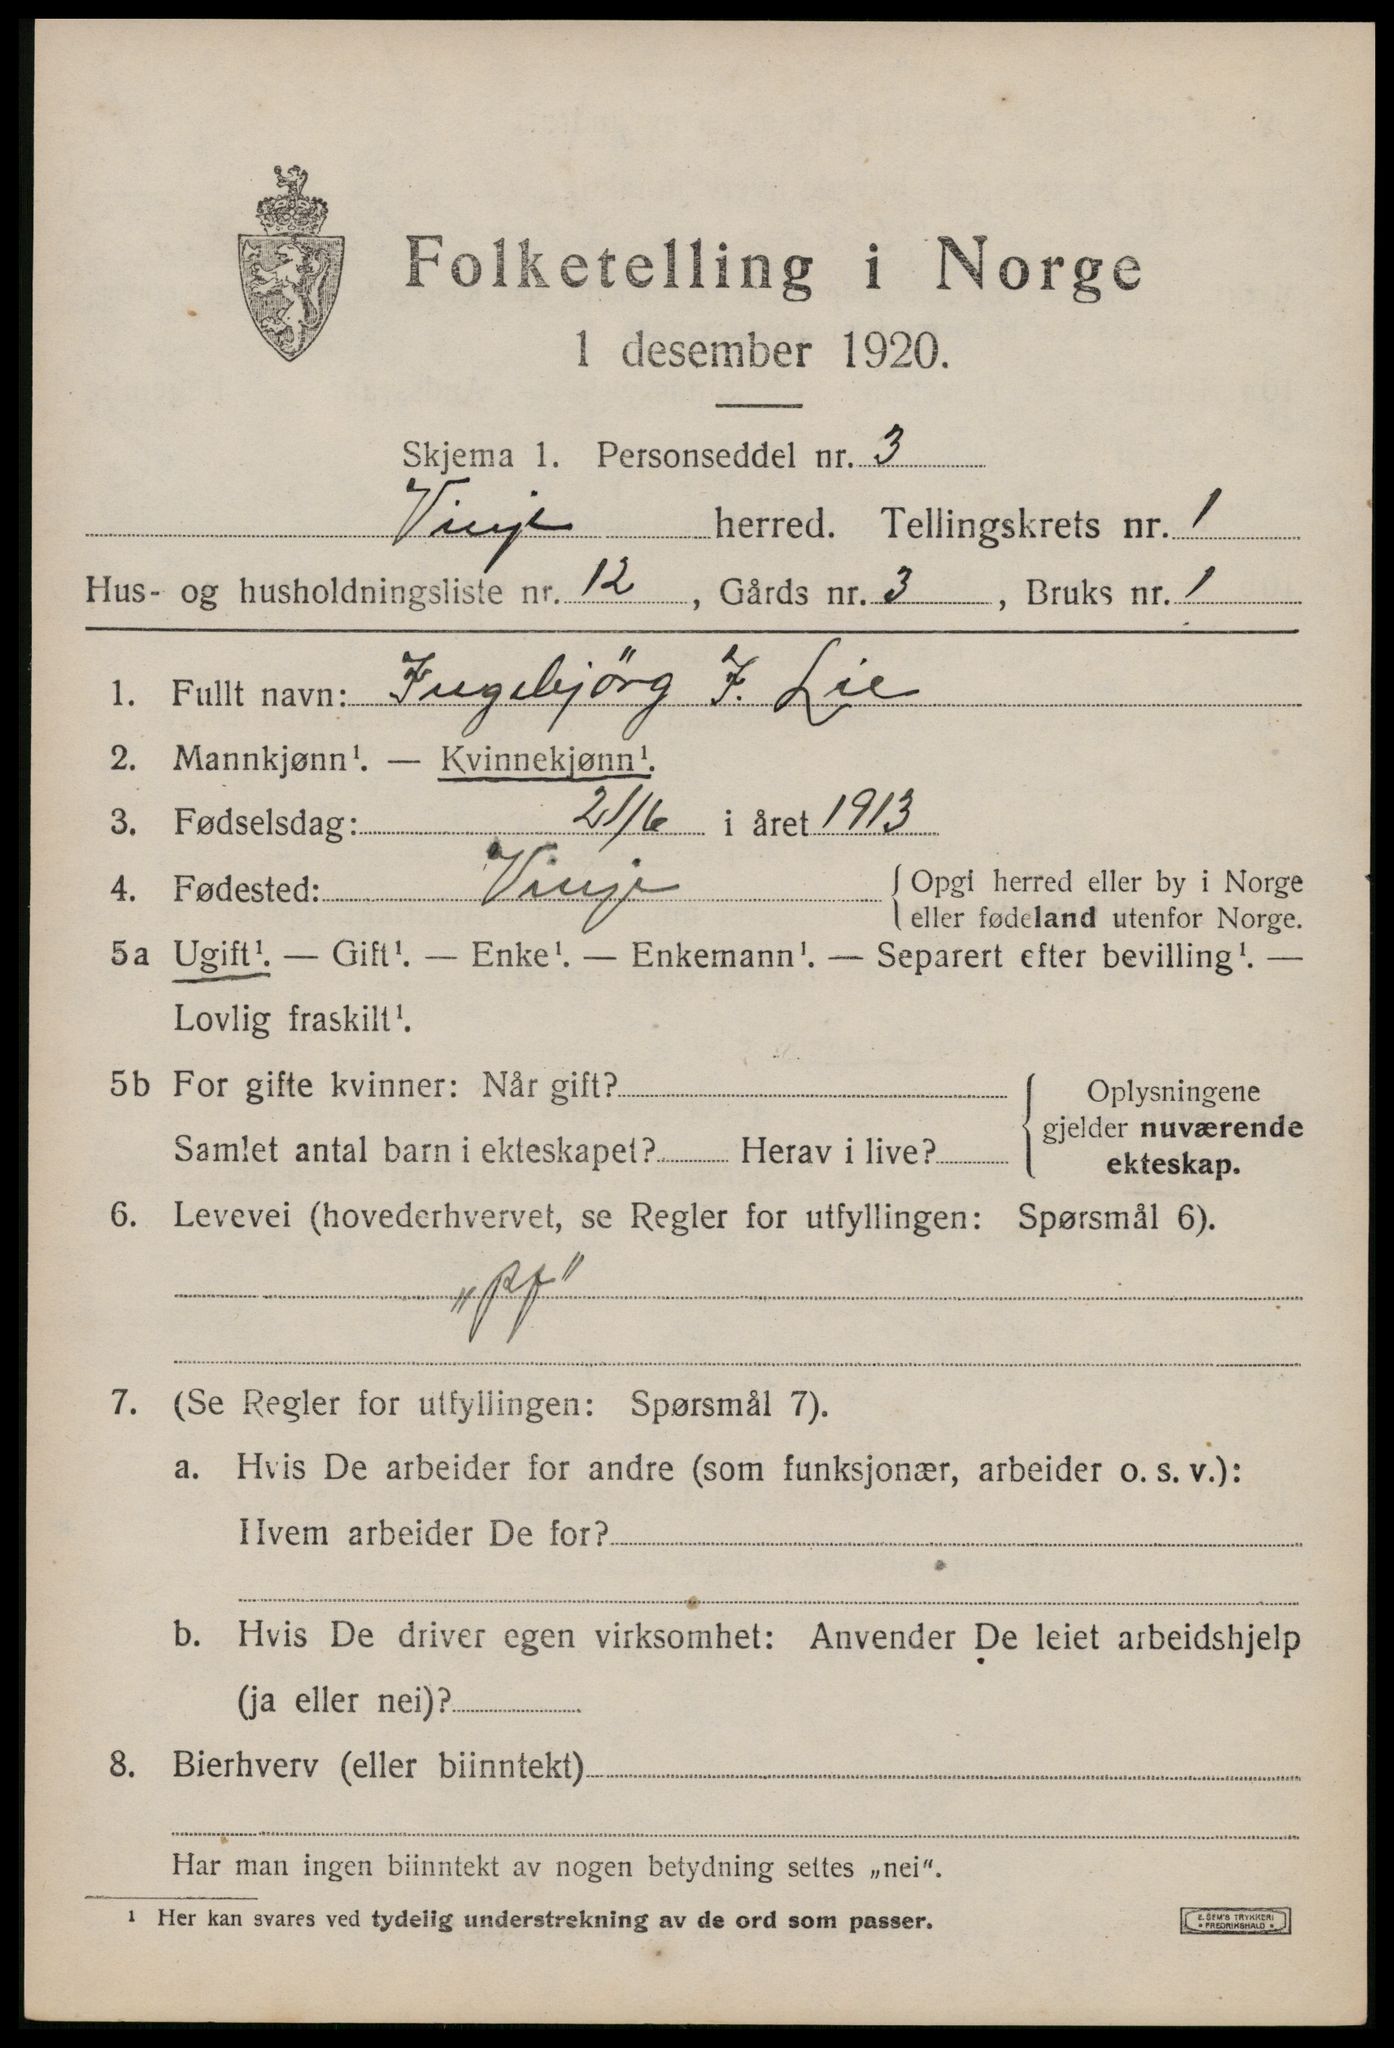 Folketelling i Norge
1 desember 1920.
Skjema 1. Personseddel nr. 3
Vinje herred. Tellingskrets nr. 1
Hus- og husholdningsliste nr. 12, Gårds nr. 3, Bruks nr. 1
1. Fullt navn: Ingebjörg F. Lie
2. Mannkjønn¹. — Kvinnekjønn¹.
3. Fødselsdag: 21/6 i året 1913
4. Fødested: Vinje { Opgi herred eller by i Norge
eller fødeland utenfor Norge.
5a Ugift¹. — Gift¹. — Enke¹. — Enkemann¹. — Separert efter bevilling¹. —
Lovlig fraskilt¹.
5b For gifte kvinner: Når gift? { Oplysningene
gjelder nuværende
Samlet antal barn i ekteskapet? Herav i live?
ekteskap.
6. Levevei (hovederhvervet, se Regler for utfyllingen: Spørsmål 6).
7. (Se Regler for utfyllingen: Spørsmål 7).
a. Hvis De arbeider for andre (som funksjonær, arbeider o. s. v.):
Hvem arbeider De for?
b. Hvis De driver egen virksomhet: Anvender De leiet arbeidshjelp
(ja eller nei)?
8. Bierhverv (eller biinntekt)
Har man ingen biinntekt av nogen betydning settes „nei".
¹ Her kan svares ved tydelig understrekning av de ord som passer.
E. SEM'S TRYKKERI
• FREDRIKSHALD •